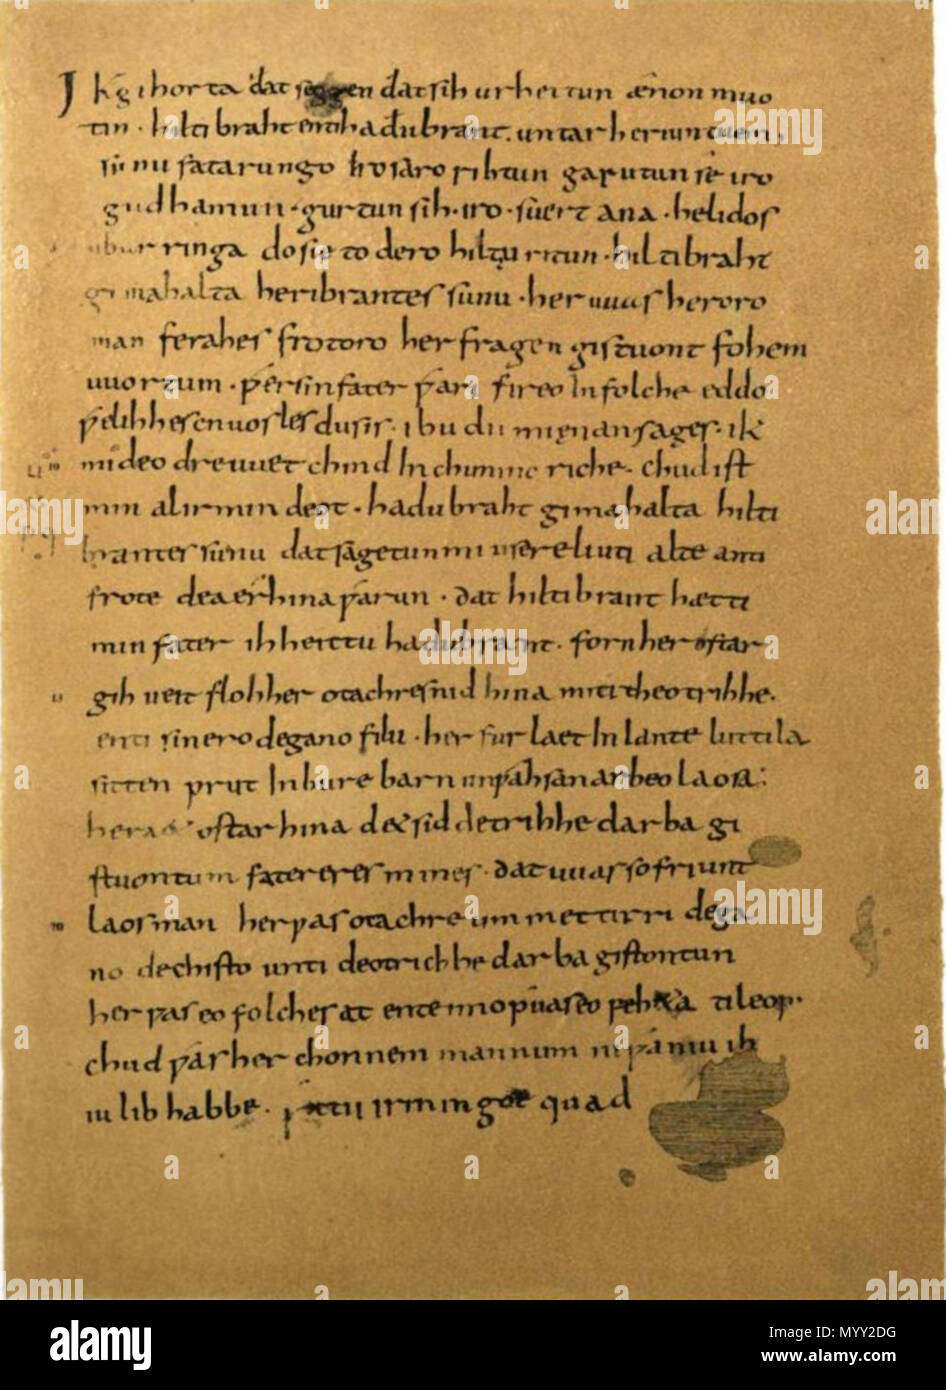 Ik gihorta dat seggen dat sih urhettun ænon muo
tin. hiltibraht enti hađubrant. untar heriun tuem.
sunu fatarungo iro saro rihtun garutun se iro
gudhamun. gurtun sih. iro. suert ana. helidos
ubar ringa do sie to dero hiltu ritun. hiltibraht
gimahalta heribrantes sunu. her uuas heroro
man ferahes frotoro her fragen gistuont fohem
uuortum. ƿer sin fater ƿari fireo In folche eddo
ƿelihhes cnuosles du sis. ibu du mi ęnan sages. ik
mi deo dre uuet chind In chunincriche. chud ist
min al irmindeot. hadubraht gimahalta hilti
brantes sunu dat sagetun mi usere liuti alte anti
frote dea erhina ƿarun. dat hiltibrant hætti
min fater ih heittu hadubrant. forn her ostar
gihueit floh her otachres nid hina miti theotrihhe.
enti sinero degano filu. her furlaet In lante luttila
sitten prut In bure barn unƿahsan arbeo laosa:
heraet ostar hina d& sid detrihhe darba gi
stuontum fatereres mines. dat uuas so friunt
laos man her ƿas otachre ummettirri dega
no dechisto unti deotrichhe darba gistontun
her ƿas eo folches at ente imo ƿuas eo ƿehta ti leop.
chud ƿas her chonnem mannum ni ƿaniu ih
iu lib habbe. ƿ&tu irmingot quad
alamy
Image ID: MYY2DG
www.alamy.com